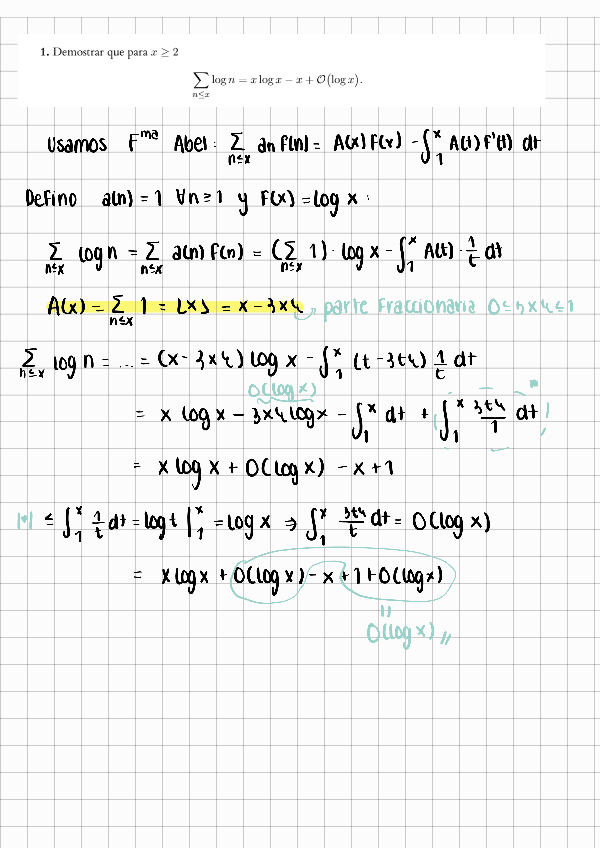 1. Demostrar que para x ≥ 2
∑_{n≤x} log n = x log x − x + O(log x).
Usamos Fᵐᵃ Abel: ∑_{n≤x} an f(n) = A(x) F(x) - ∫_1^x A(t) F'(t) dt
Defino a(n) = 1 ∀n≥1 y F(x) = log x :
∑_{n≤x} log n = ∑_{n≤x} a(n) F(n) = (∑_{n≤x} 1) · log x - ∫_1^x A(t) · 1/t dt
A(x) = ∑_{n≤x} 1 = ⌊x⌋ = x - {x} → parte fraccionaria 0 ≤ {x} ≤ 1
∑_{n≤x} log n = ... = (x - {x}) log x - ∫_1^x (t - {t}) 1/t dt
O(log x) *
= x log x - {x} log x - ∫_1^x dt + | ∫_1^x {t}/1 dt |
= x log x + O(log x) - x + 1
|*| ≤ ∫_1^x 1/t dt = log t |_1^x = log x ⇒ ∫_1^x {t}/t dt = O(log x)
= x log x + O(log x) - x + 1 + O(log x)
||
O(log x) //